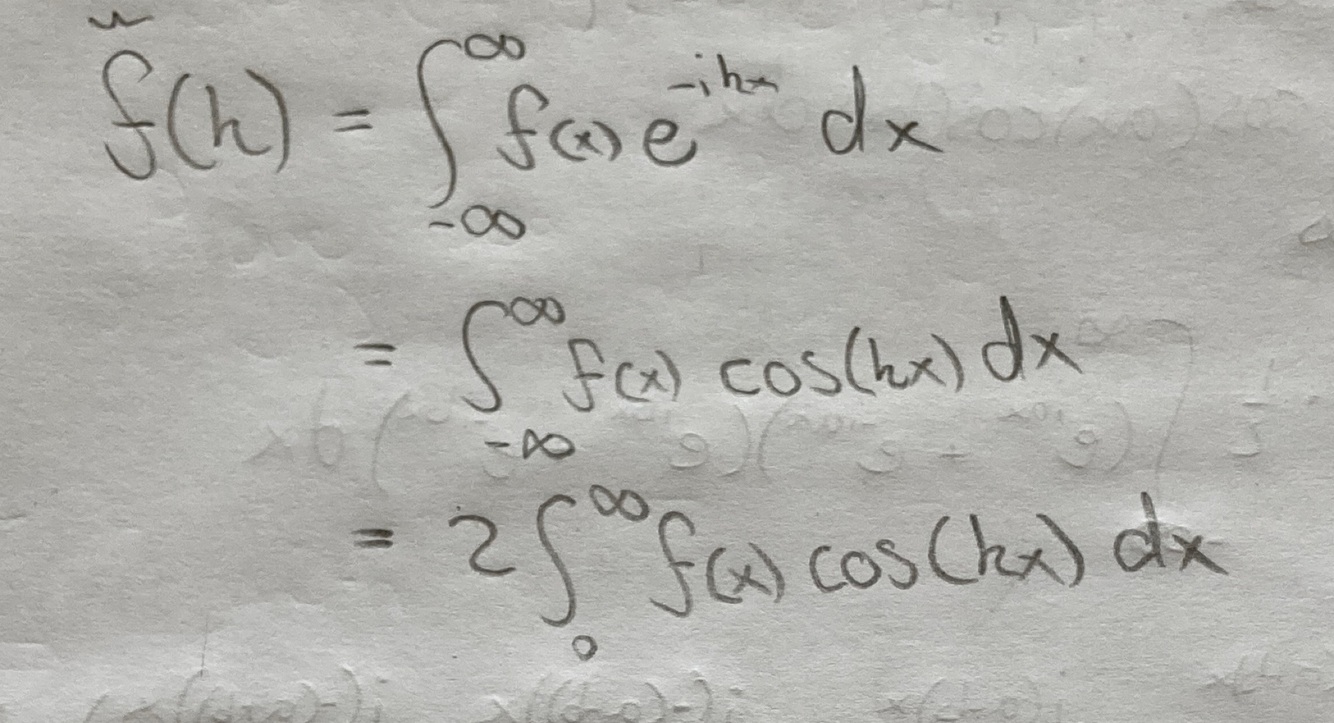 f̃(k) = ∫_{-∞}^{∞} f(x) e^{-ikx} dx
= ∫_{-∞}^{∞} f(x) cos(kx) dx
= 2 ∫_{0}^{∞} f(x) cos(kx) dx